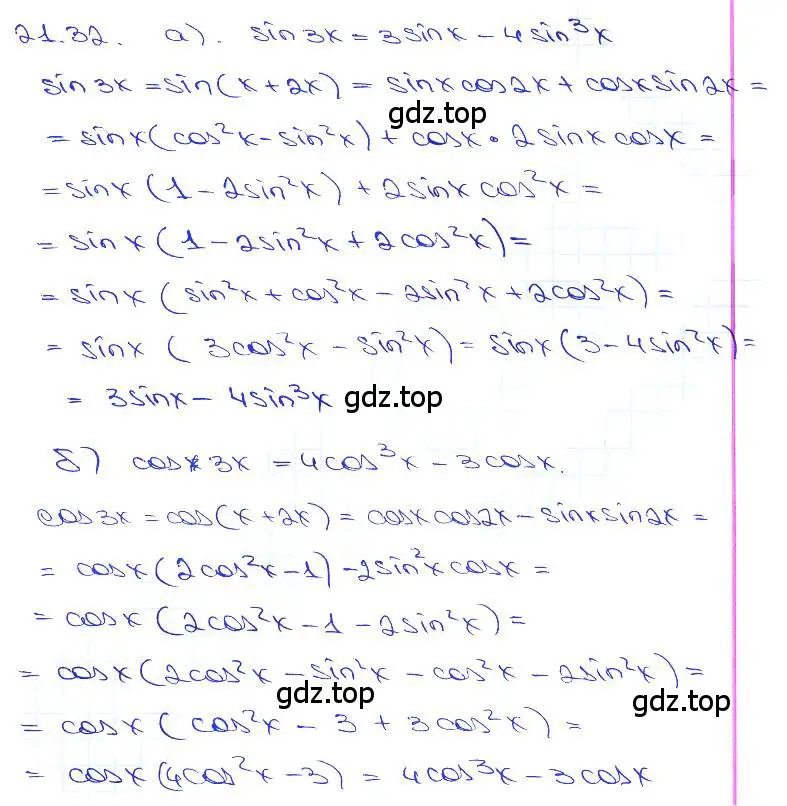 21.32. а). sin 3x = 3sin x − 4sin³x
sin 3x = sin(x + 2x) = sin x cos 2x + cos x sin 2x =
gdz.top
= sin x (cos²x − sin²x) + cos x · 2 sin x cos x =
= sin x (1 − 2sin²x) + 2sin x cos²x =
= sin x (1 − 2sin²x + 2cos²x) =
= sin x (sin²x + cos²x − 2sin²x + 2cos²x) =
= sin x (3cos²x − sin²x) = sin x (3 − 4sin²x) =
= 3sin x − 4sin³x gdz.top
б) cos 3x = 4cos³x − 3cos x.
cos 3x = cos(x + 2x) = cos x cos 2x − sin x sin 2x =
= cos x (2cos²x − 1) − 2sin²x cos x =
= cos x (2cos²x − 1 − 2sin²x) =
= cos x (2cos²x − sin²x − cos²x − 2sin²x) =
gdz.top gdz.top
= cos x (cos²x − 3 + 3cos²x) =
= cos x (4cos²x − 3) = 4cos³x − 3cos x